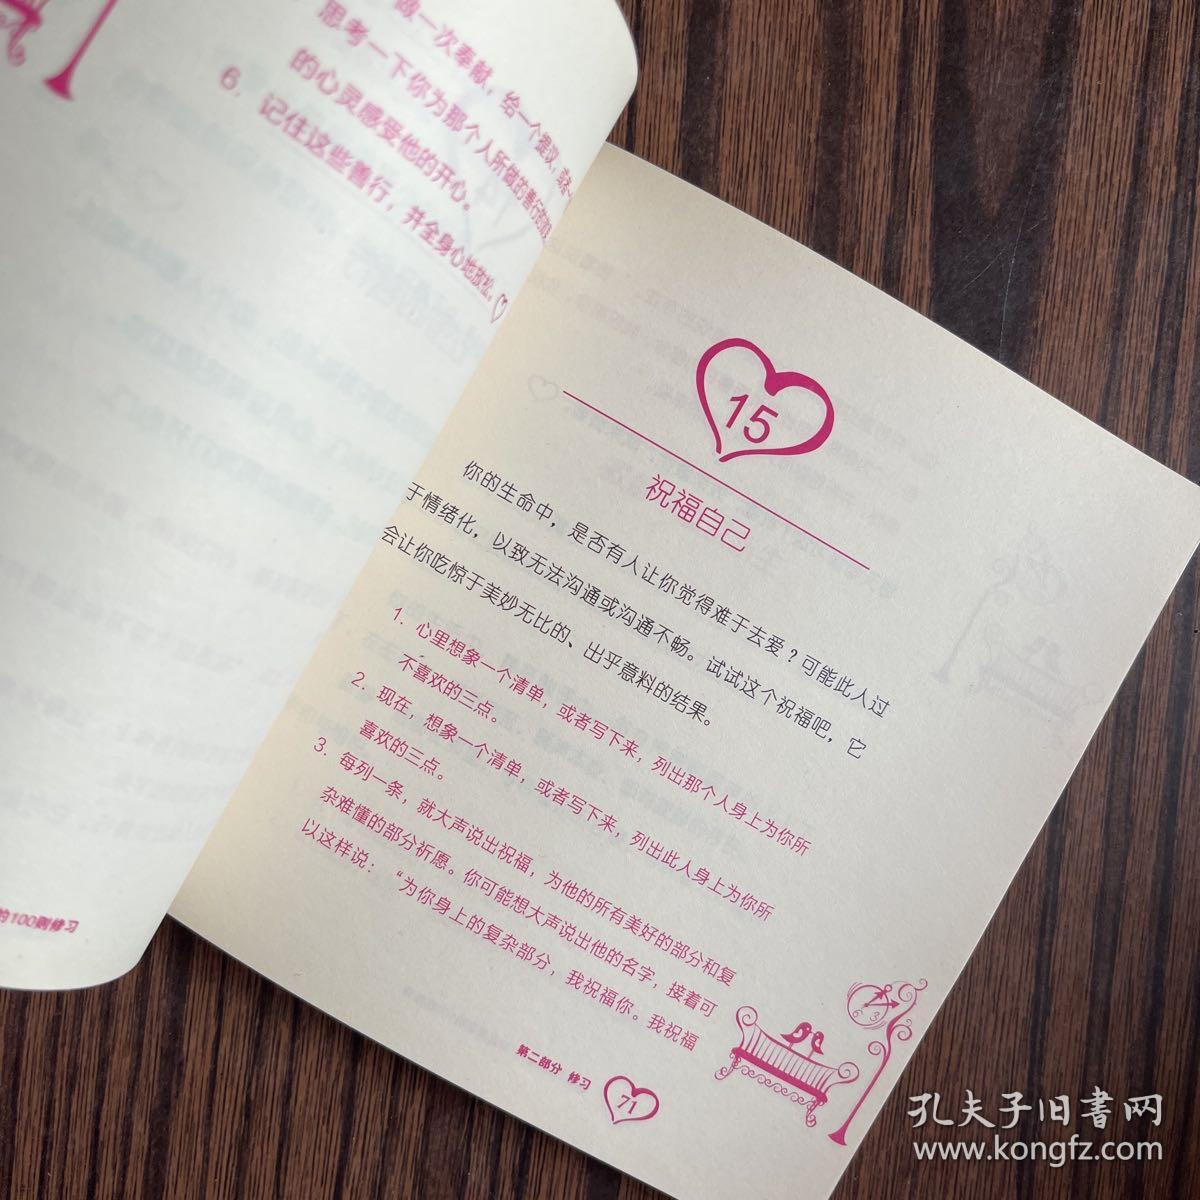 做一次奉献，给一个提议，或来
思考一下你为那个人所做的善行
的心灵感受他的开心。
6．记住这些善行，并全身心地放松。
的100则修习
15
祝福自己
你的生命中，是否有人让你觉得难于去爱？可能此人过
于情绪化，以致无法沟通或沟通不畅。试试这个祝福吧，它
会让你吃惊于美妙无比的、出乎意料的结果。
1．心里想象一个清单，或者写下来，列出那个人身上为你所
不喜欢的三点。
2．现在，想象一个清单，或者写下来，列出此人身上为你所
喜欢的三点。
3．每列一条，就大声说出祝福，为他的所有美好的部分和复
杂难懂的部分祈愿。你可能想大声说出他的名字，接着可
以这样说：“为你身上的复杂部分，我祝福你。我祝福
第二部分 修习
71
孔夫子旧书网
www.kongfz.com